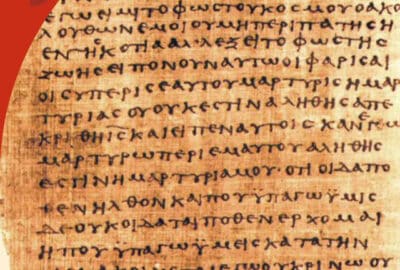 ΕΓΩΕΙΜΙΤΟΦΩϹΤΟΥΚΟϹΜΟΥΟΑΚΟ
ΛΟΥΘΩΝΕΜΟΙΟΥΜΗΠΕΡΙΠΑΤΗϹΗ
ΕΝΤΗϹΚΟΤΙΑΑΛΛΕΞΕΙΤΟΦΩϹΤΗϹ
ΖΩΗϹΕΙΠΟΝΟΥΝΑΥΤΩΟΙΦΑΡΙϹΑΙ
ΟΙϹΥΠΕΡΙϹΕΑΥΤΟΥΜΑΡΤΥΡΙϹΗΜΑΡ
ΤΥΡΙΑϹΟΥΟΥΚΕϹΤΙΝΑΛΗΘΗϹΑΠΕ
ΚΡΙΘΗΙϹΚΑΙΕΙΠΕΝΑΥΤΟΙϹΚΑΝΕΓΩ
ΜΑΡΤΥΡΩΠΕΡΙΕΜΑΥΤΟΥΑΛΗΘΗϹ
ΕϹΤΙΝΗΜΑΡΤΥΡΙΑΜΟΥ·ΟΤΙΟΙΔΑΠΟ
ΘΕΝΗΛΘΟΝΚΑΙΠΟΥΫΠΑΓΩΫΜΙϹ
ΔΕΟΥΚΟΙΔΑΤΑΙΠΟΘΕΝΕΡΧΟΜΑΙ
ΗΠΟΥΫΠΑΓΩΫΜΕΙϹΚΑΤΑΤΗΝ